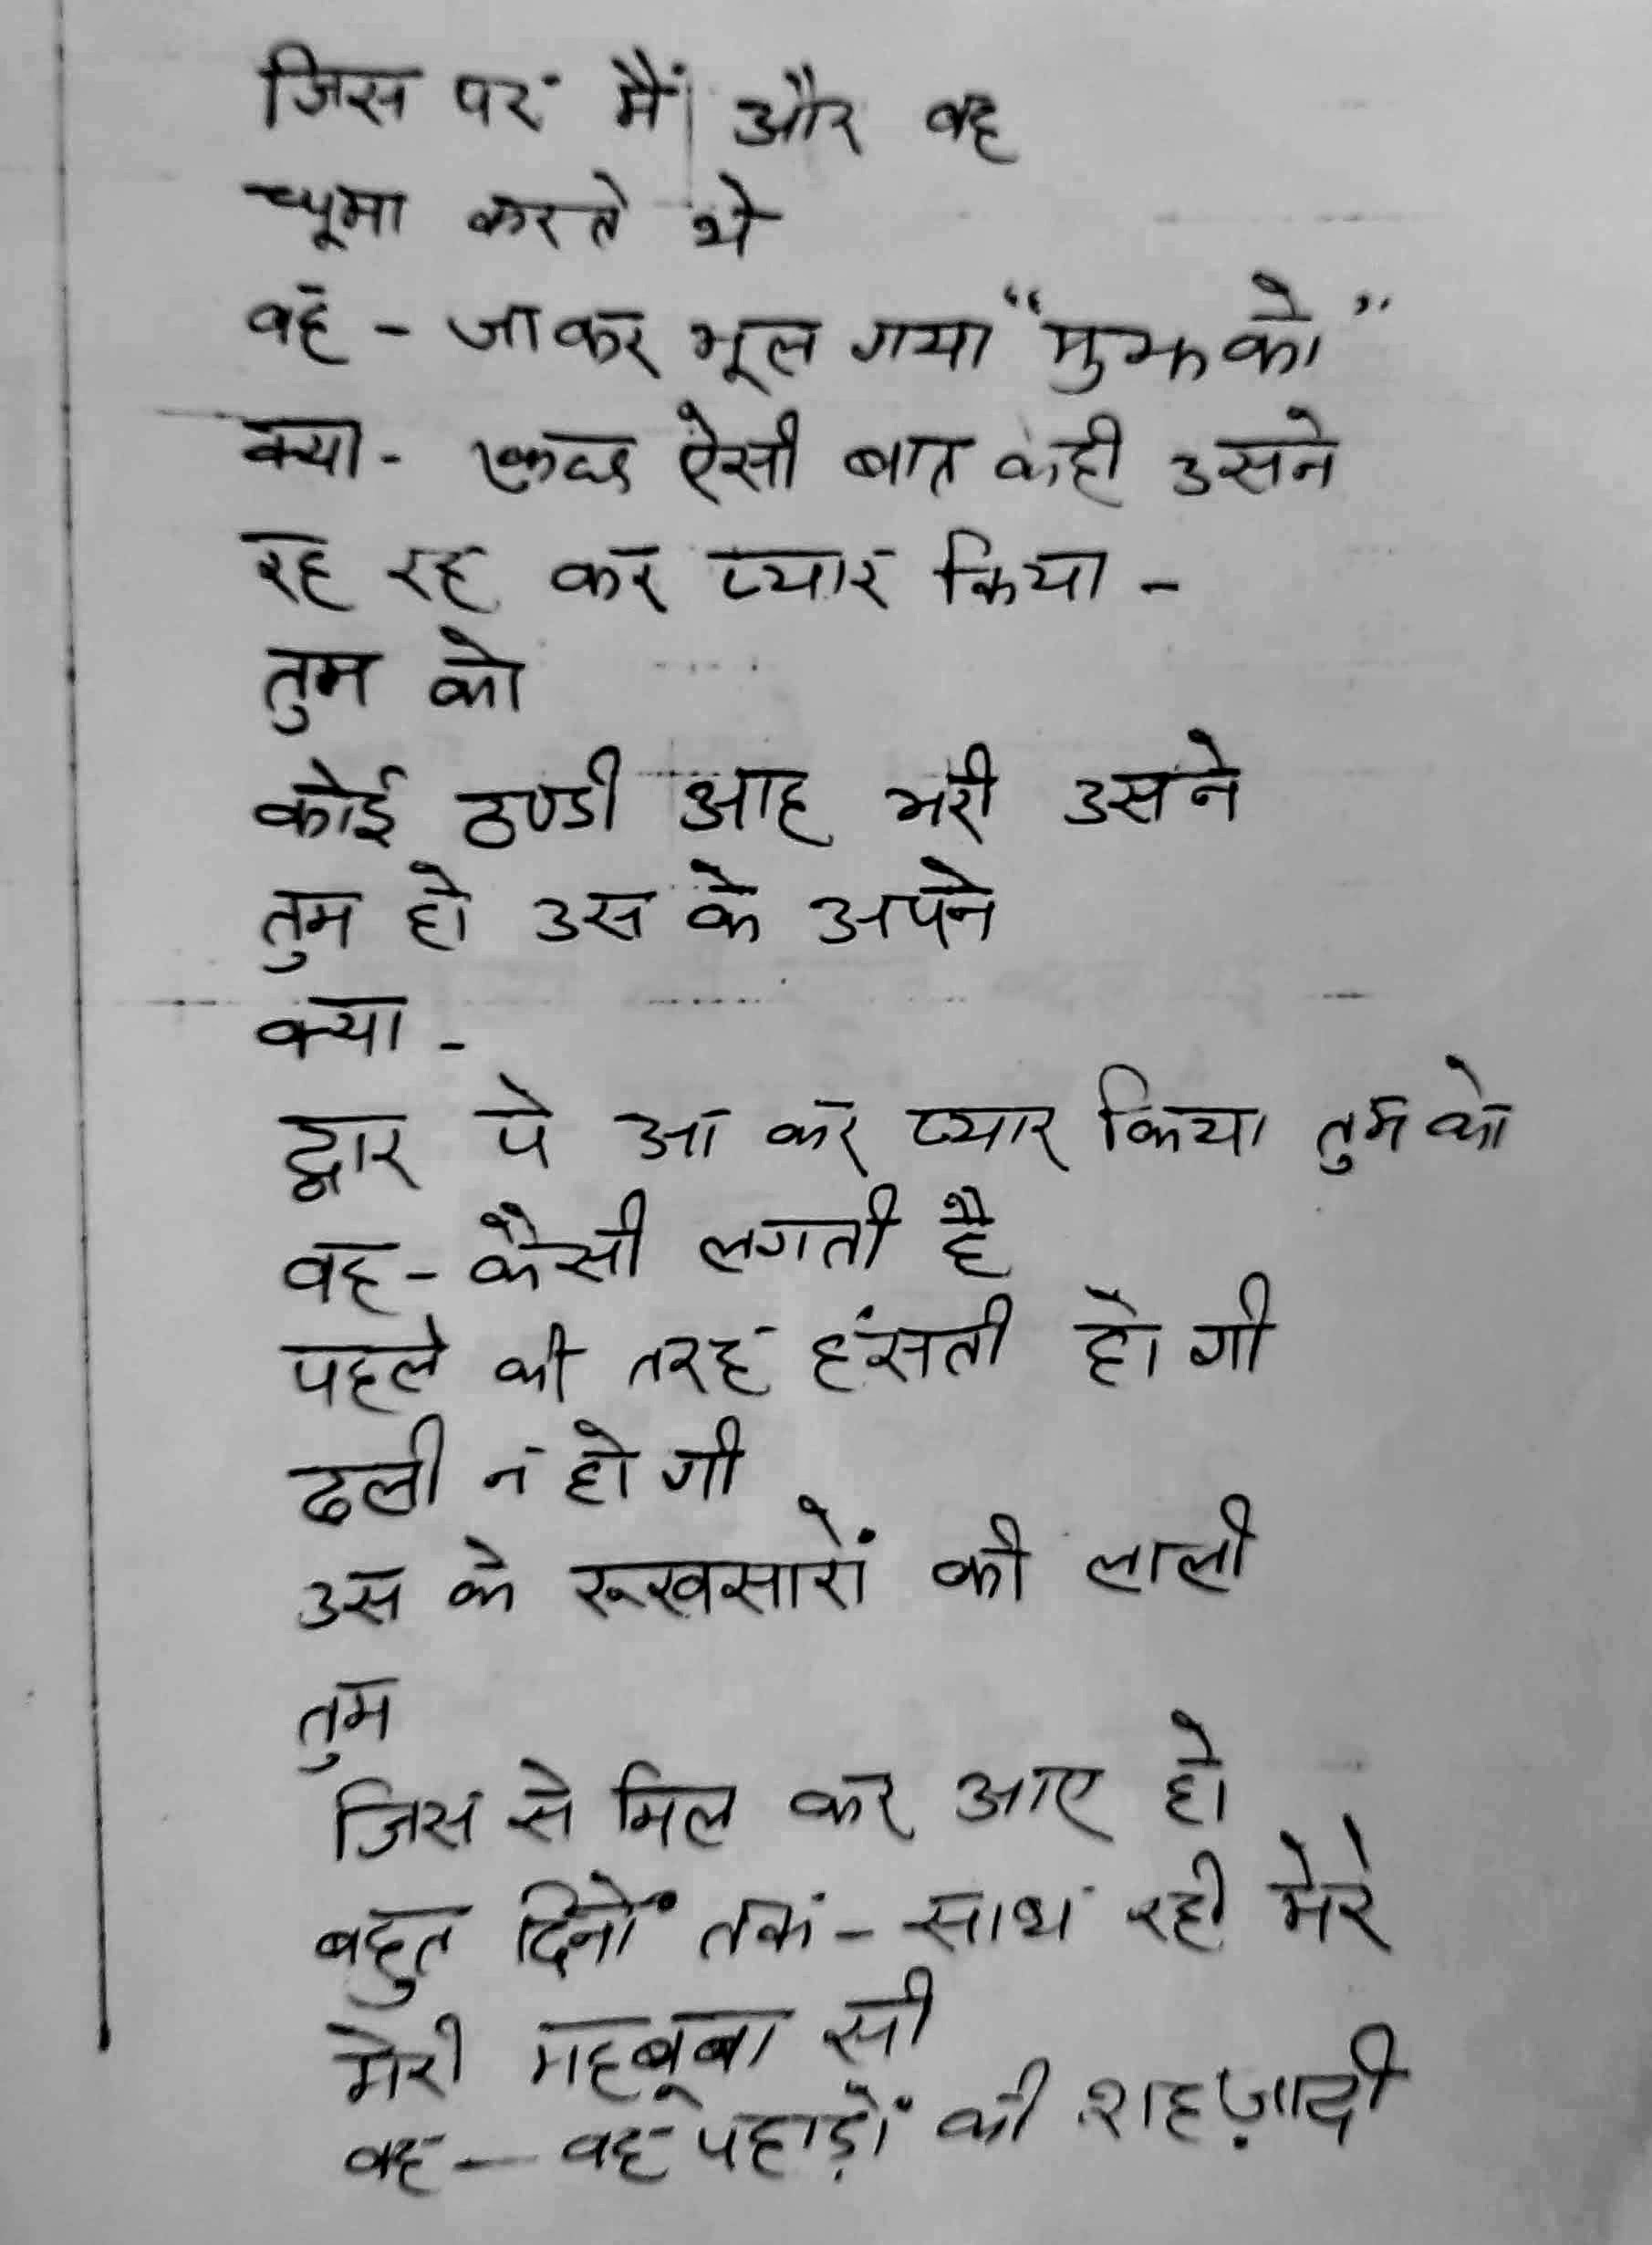 जिस पर मैं और वह
चूमा करते थे
वह - जा कर भूल गया "मुझ को"
क्या - कुछ ऐसी बात कही उसने
रह रह कर प्यार किया -
तुम को
कोई ठण्डी आह भरी उसने
तुम हो उस के अपने
क्या -
द्वार पे आ कर प्यार किया तुम को
वह - कैसी लगती है
पहले की तरह हंसती हो गी
ढली न हो गी
उस के रूखसारों की लाली
तुम
जिस से मिल कर आए हो
बहुत दिनों तक - साथ रही मेरे
मेरी महबूबा सी
वह - वह पहाड़ों की शहज़ादी